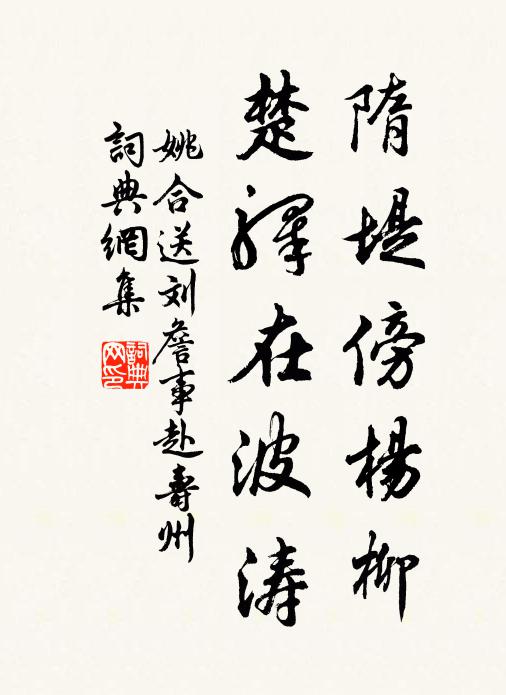 隋堤傍楊柳
楚驛在波濤
姚合送刘詹事赴壽州
詞典網集
詞典网印